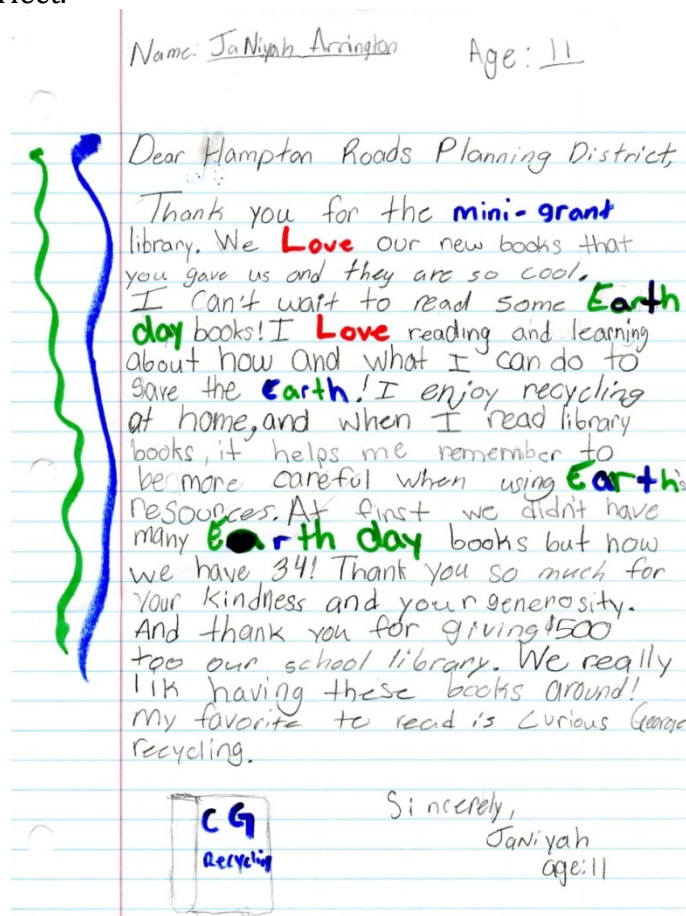 Name: JaNiyah Arrington Age: 11
Dear Hampton Roads Planning District,
Thank you for the mini-grant
library. We Love our new books that
you gave us and they are so cool.
I can't wait to read some Earth
day books! I Love reading and learning
about how and what I can do to
save the Earth! I enjoy recycling
at home, and when I read library
books, it helps me remember to
be more careful when using Earth's
resources. At first we didn't have
many Earth day books but now
we have 34! Thank you so much for
your kindness and your generosity.
And thank you for giving $500
too our school library. We really
lik having these books around!
My favorite to read is Curious George
recycling.
CG
Recycling
Sincerely,
JaNiyah
age: 11